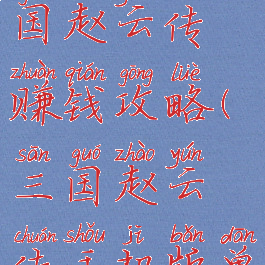 国赵云传
zhuàn qián gōng lüè
赚钱攻略(
sān guó zhào yún
三国赵云
chuán shǒu jī bǎn dān
传手机版单